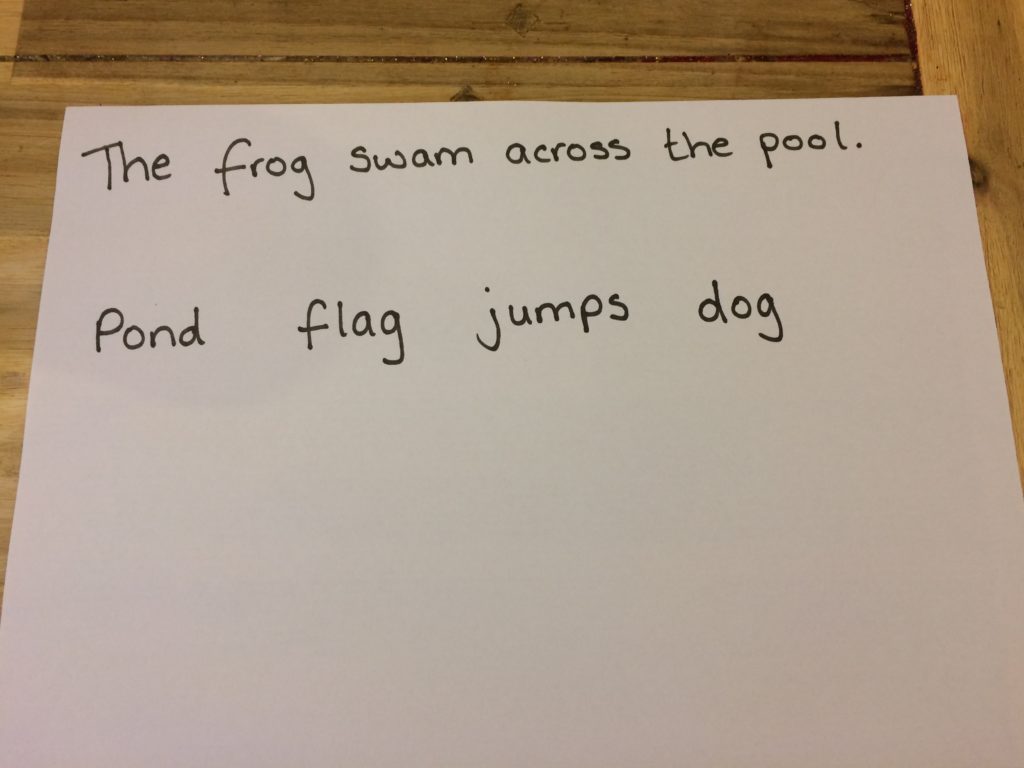 The frog swam across the pool.
Pond flag jumps dog